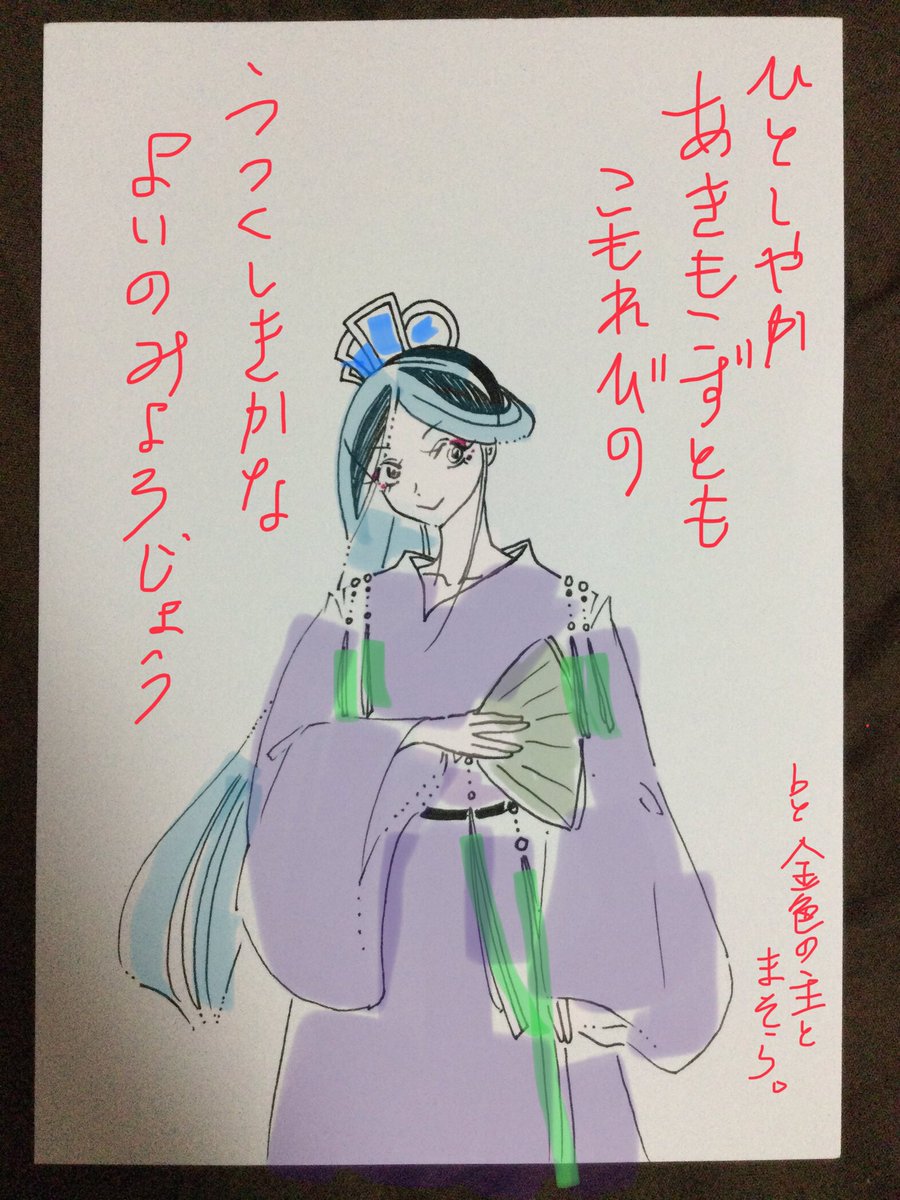 ひとしやか
あきもこずとも
こもれびの
うつくしきかな
よいのみょうじょう
と金色の主と
まそら。